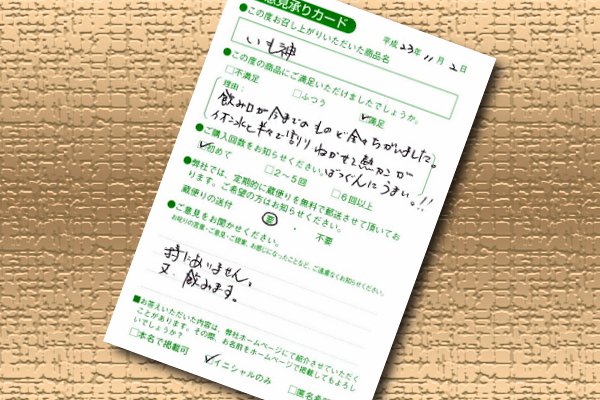 意見承りカード
平成23年11月2日
●この度お召し上がりいただいた商品名
いも神
●この度の商品にご満足いただけましたでしょうか。
□不満足 □ふつう ☑満足
理由：
飲み口が今までのものと全々ちがいました。
イオン水と半々で割り ねかせて熱カンが
ばつぐんにうまい。!!
●ご購入回数をお知らせください。
☑初めて □2～5回 □6回以上
●弊社では、定期的に蔵便りを無料で郵送させて頂いてお
ります。ご希望の方はお知らせください。
蔵便りの送付 要 ・ 不要
●ご意見をお聞かせください。
お叱りの言葉・ご意見・ご提案、お感じになったことなど、ご遠慮なくお知らせください。
特にありません。
又、飲みます。
■お答えいただいた内容は、弊社ホームページにて紹介させていただく
ことがあります。その際、お名前をホームページで掲載してもよろし
いでしょうか？
□本名で掲載可 ☑イニシャルのみ □匿名希